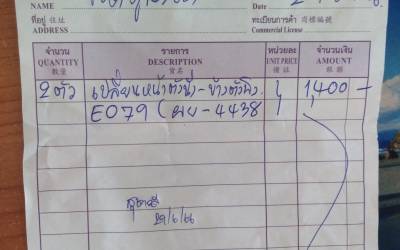 NAME Date
ที่อยู่ 住址 ทะเบียนการค้า 商標編號
ADDRESS Commercial License
จำนวน รายการ หน่วยละ จำนวนเงิน
QUANTITY DESCRIPTION UNIT PRICE AMOUNT
數量 貨名 價註 銀額
2 ตัว เปลี่ยนหน้าตัวนั่ง-ข้างตัวโดย. 1,400 -
E079 (ผย-4438
29/6/66